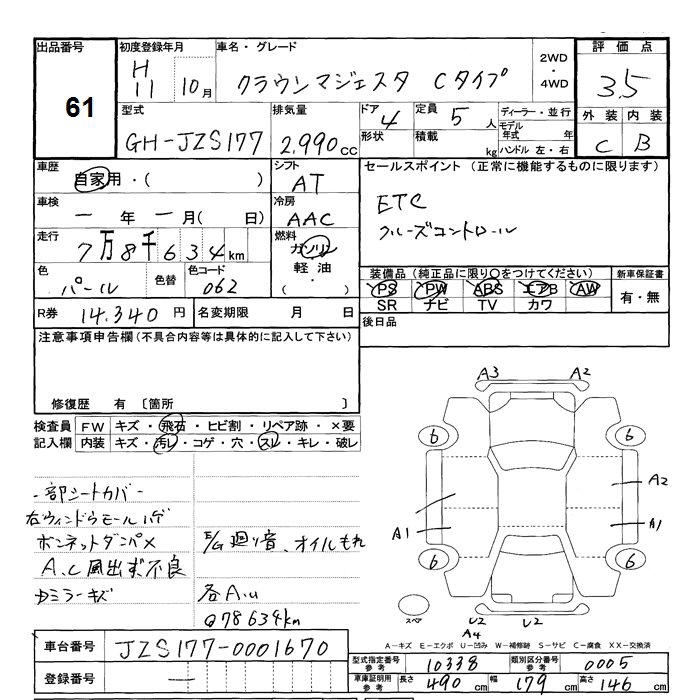 出品番号
61
初度登録年月
H11 10月
車名・グレード
クラウンマジェスタ Cタイプ
2WD
・
4WD
評価点
3.5
型式
GH-JZS177
排気量
2,990cc
ドア 4
形状
定員 5人
積載 kg
ディーラー・並行
モデル年式 年
ハンドル 左・右
外装 内装
C B
車歴
自家用・( )
シフト
AT
セールスポイント (正常に機能するものに限ります)
ETC
クルーズコントロール
車検
ー年ー月( 日)
冷房
AAC
走行
7万8千634km
燃料
ガソリン
軽油
( ・ )
色
パール
色替
色コード
062
装備品 (純正品に限り○をつけてください)
PS PW ABS エアB AW
SR ナビ TV カワ
新車保証書
有・無
R券 14,340円
名変期限 月 日
後日品
注意事項申告欄(不具合内容等は具体的に記入して下さい)
修復歴 有 〔箇所 〕
検査員 FW キズ・飛石・ヒビ割・リペア跡・×要
記入欄 内装 キズ・汚レ・コゲ・穴・スレ・キレ・破レ
一部シートカバー
右ウィンドウモールハゲ
ボンネットダンパ×
E/G廻り音、オイルもれ
A.C風出ず不良
カミラーキズ
各A.U
Q78634km
A3 A2
6 6
A2
A1 A1
6 6
スペア
U2 U2
A4
車台番号 JZS177-0001670
登録番号 ー
A-キズ E-エクボ U-凹み W-補修跡 S-サビ C-腐食 XX-交換済
型式指定番号参考 10338 類別区分番号参考 0005
車庫証明用参考 長さ 490cm 幅 179cm 高さ 146cm